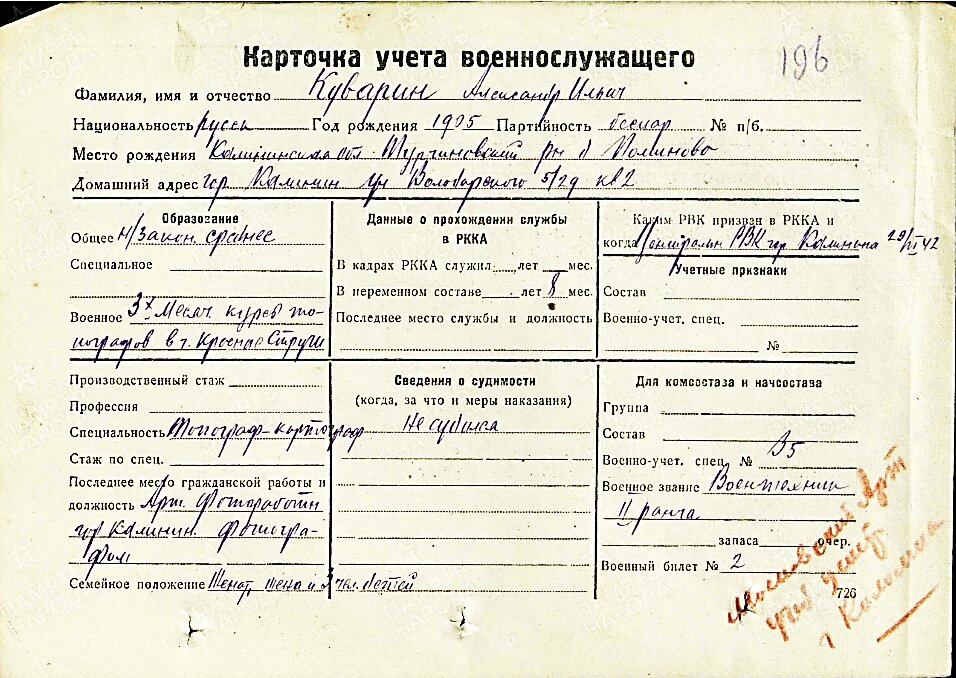 196
Карточка учета военнослужащего
Фамилия, имя и отчество Куварин Александр Ильич
Национальность русск Год рождения 1905 Партийность беспар № п/б.
Место рождения Калининская обл Тургиновский рн д Полиново
Домашний адрес гор Калинин ул Володарского 5/29 кв 2
Образование
Общее н/закон. среднее
Специальное
Военное 3х месяч курсы то-
пографов в г. Красные Струги
Данные о прохождении службы
в РККА
В кадрах РККА служил лет мес.
В переменном составе лет 8 мес.
Последнее место службы и должность
Каким РВК призван в РККА и
когда Централън РВК гор Калинина 29/VI 42
Учетные признаки
Состав
Военно-учет. спец.
№
Производственный стаж
Профессия
Специальность Топограф-картограф
Стаж по спец.
Последнее место гражданской работы и
должность Арт. Фотоработн
гор Калинин. фотогра-
фом
Семейное положение Женат, жена и 3 чел. детей
Сведения о судимости
(когда, за что и меры наказания)
Не судился
Для комсостава и начсостава
Группа
Состав
Военно-учет. спец. № 35
Военное звание Воентехник
II ранга
запаса очер.
Военный билет № 2
726
Московский Арт
учеб центр
г Коломна